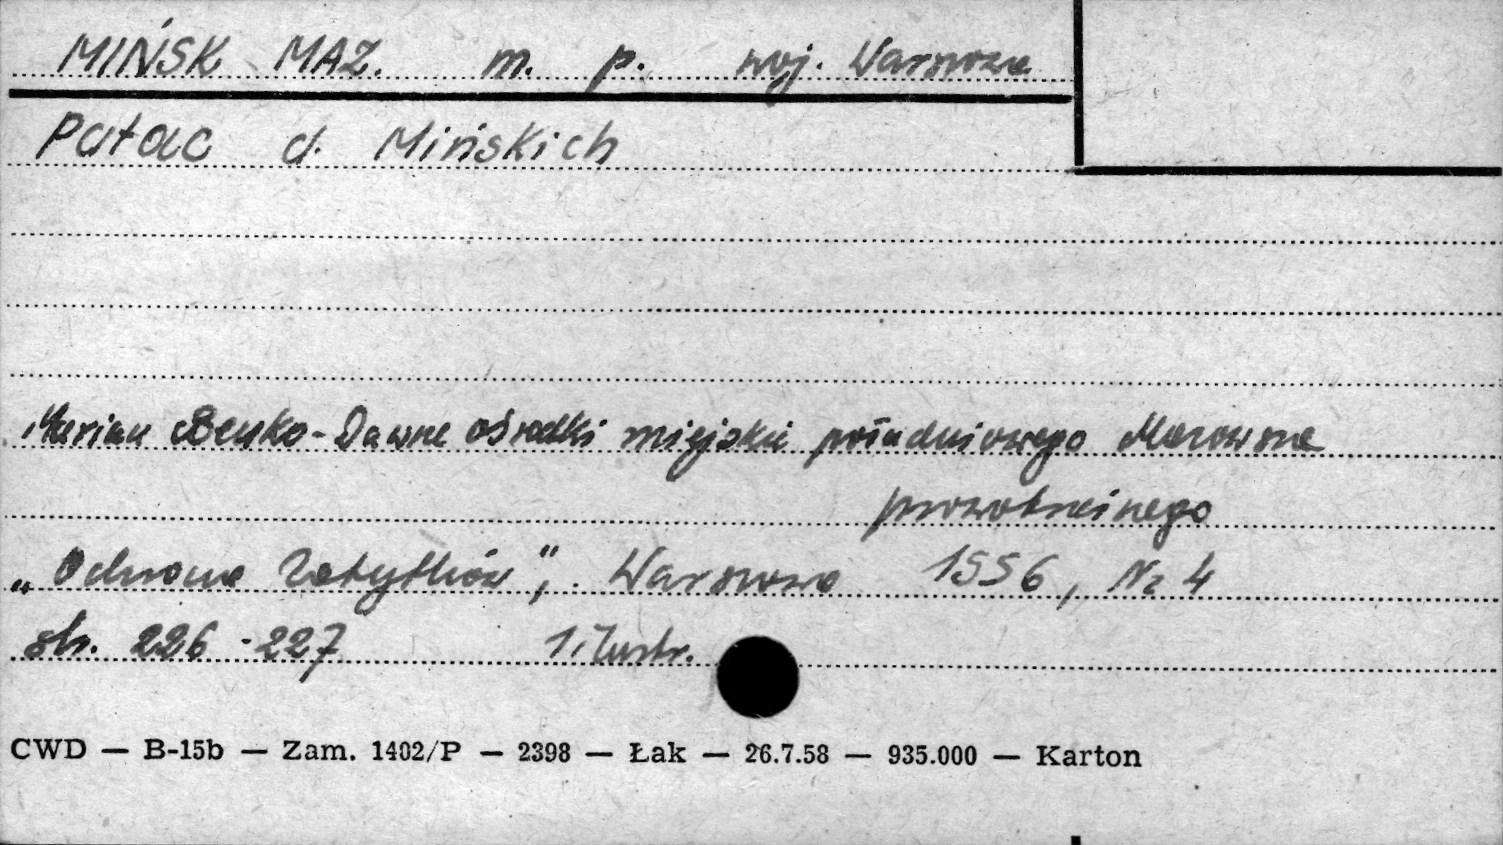 MIŃSK MAZ. m. p. woj. Warszawa
Pałac d. Mińskich
Marian Benko - Dawne ośrodki miejskie południowego Mazowsza
prawobrzeżnego
„Ochrona Zabytków", Warszawa 1956, Nr 4
str. 226-227 1 ilustr.
CWD — B-15b — Zam. 1402/P — 2398 — Łak — 26.7.58 — 935.000 — Karton